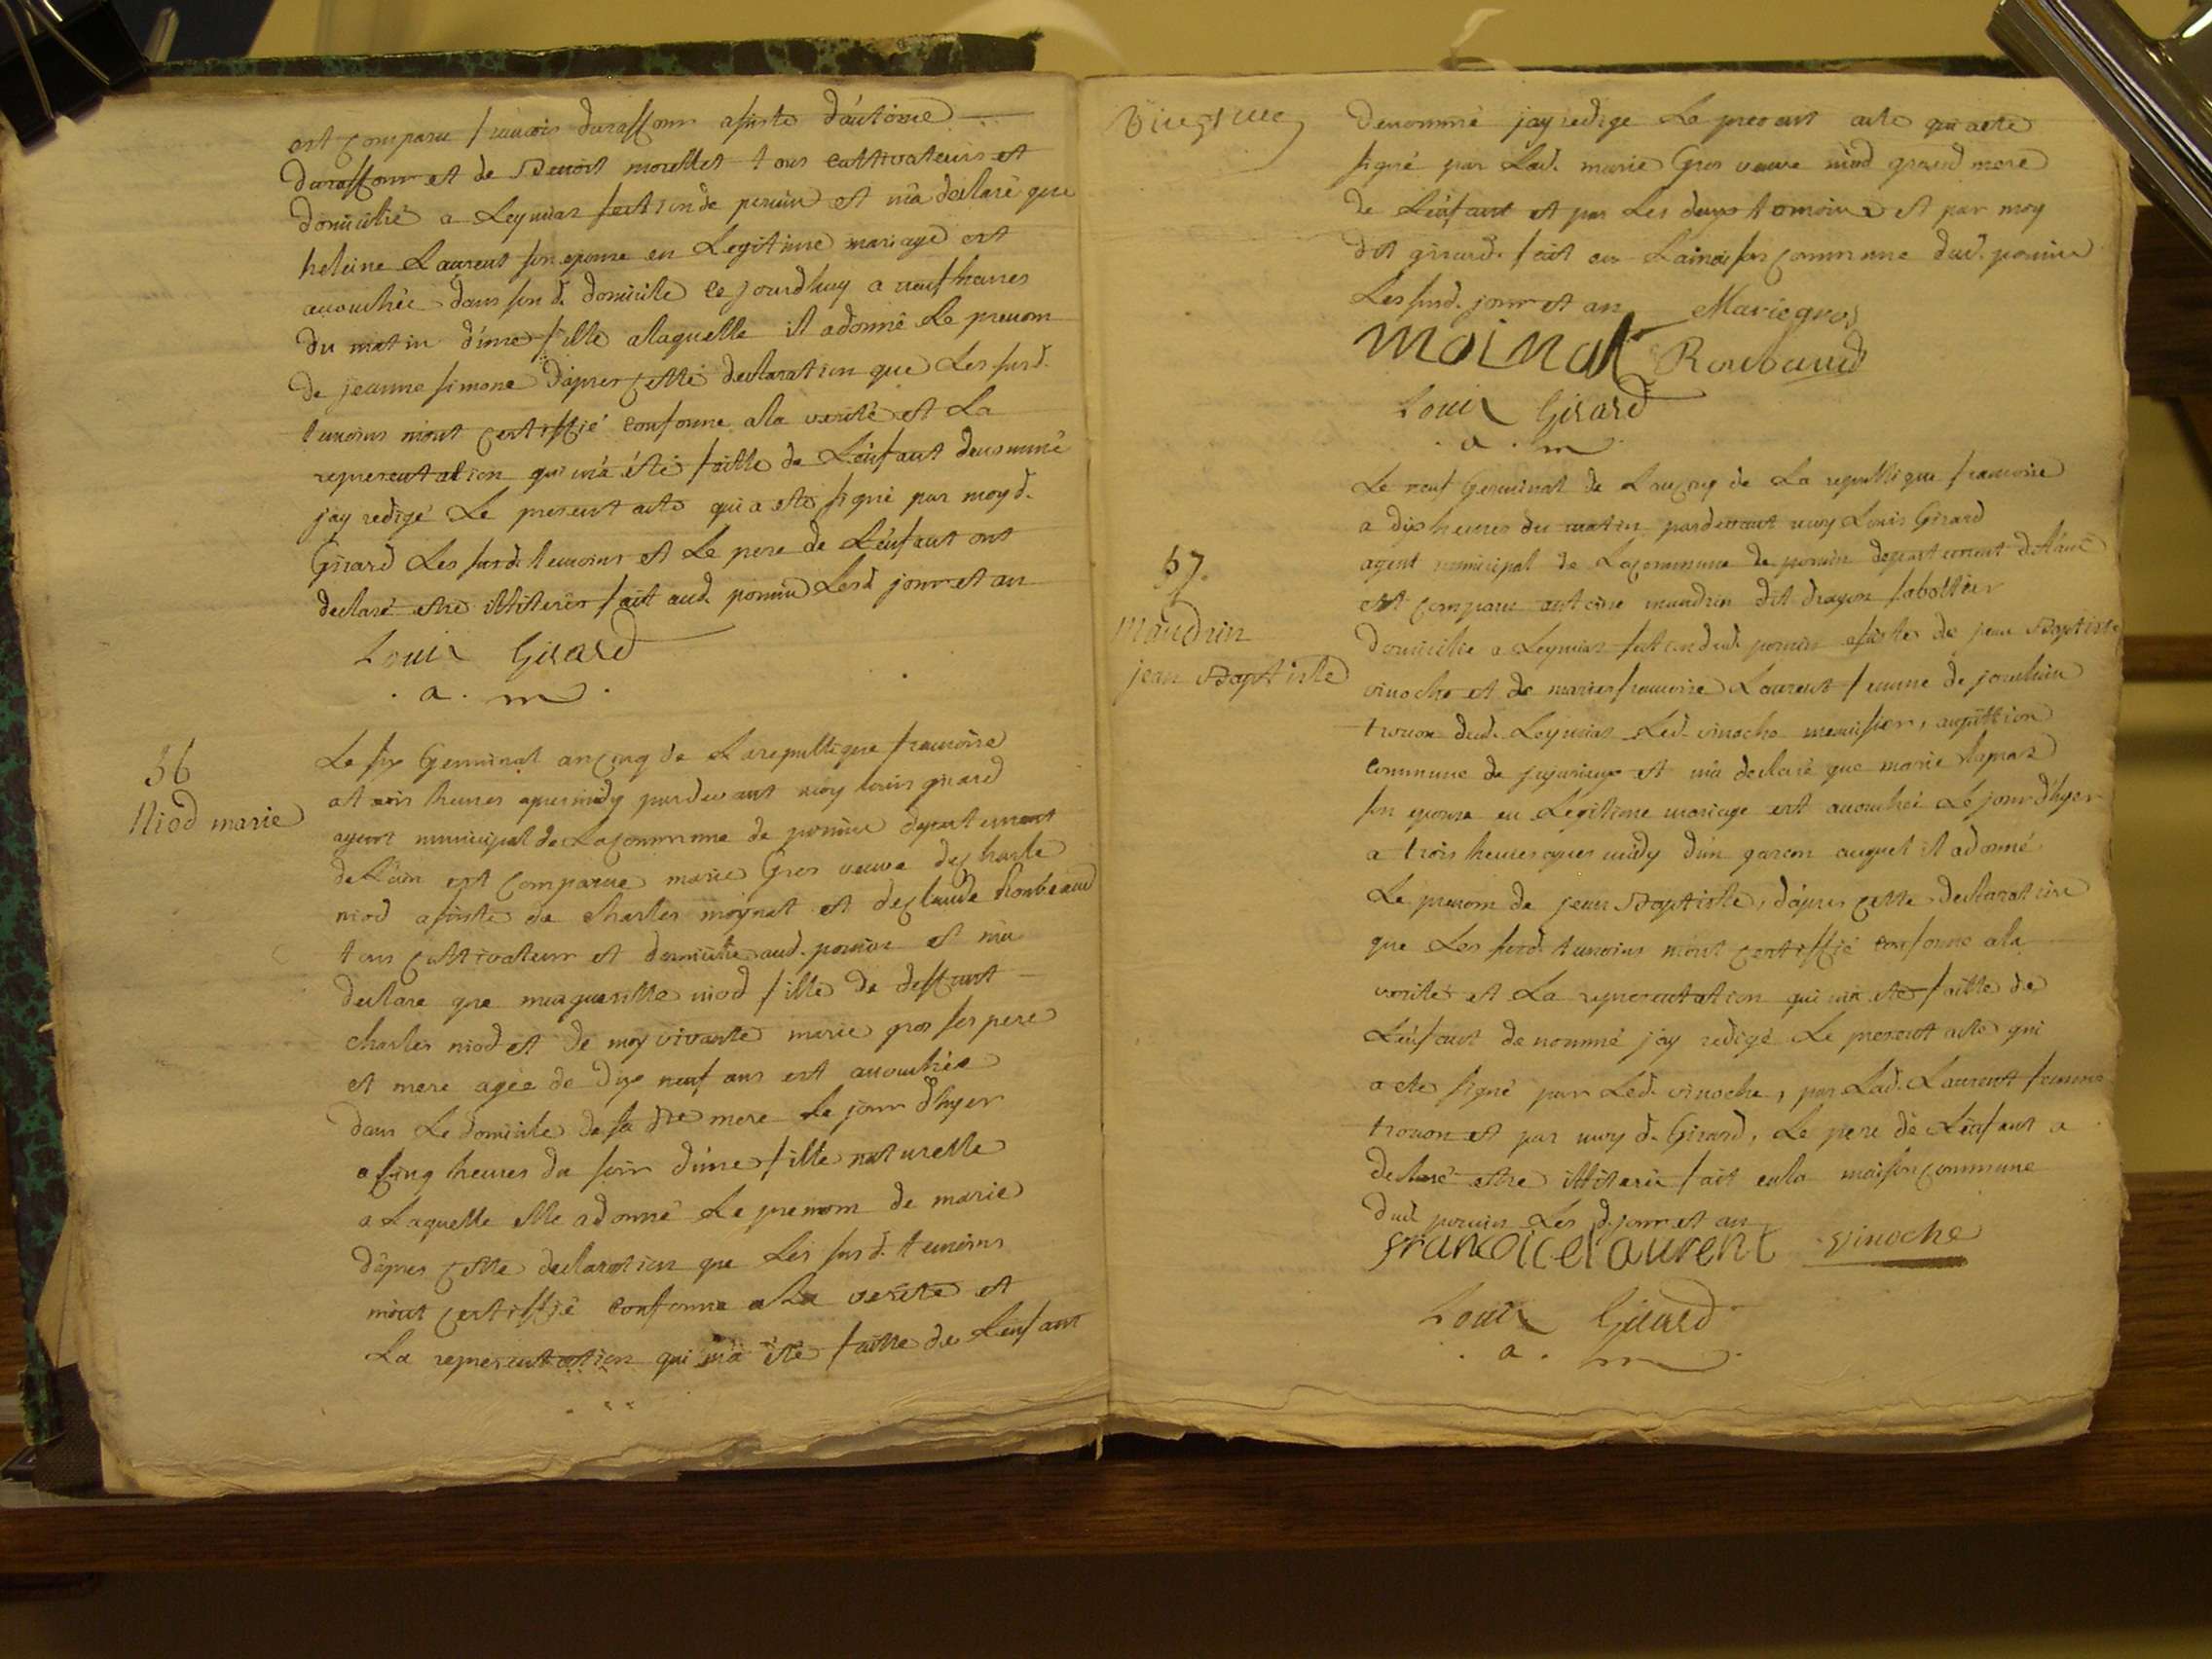 est comparu francois durassour assisté d'antoine
durassour et de Benoit morellet tous cultivateurs et
domicilié a Leymiaz section de poncin et m'a déclaré que
heleine Laurent son epouse en Legitime mariage est
accouchée dans son d. domicile ce jourdhuy a neuf heures
du matin d'une fille a laquelle il a donné Le prenom
de jeanne simone d'apres cette declaration que Les susd.
temoins m'ont certiffié conforme a la verité et La
representation qui m'a été faitte de L'enfant denommé
j'ay redigé Le present acte qui a eté signé par moy d.
Girard Les susd. temoins et Le pere de L'enfant ont
declaré etre illiterés fait aud. poncin Lesd. jour et an
Louis Girard
. a . m .
36
Niod marie
Le six Germinal an cinq de La republique francoise
a trois heures apres midy pardevant moy Louis girard
agent municipal de La commune de poncin departement
de L'ain est comparue marie Gros veuve de charle
niod assisté de charles moynat et de claude Roubeaud
tous cultivateurs et domicilié aud. poncin et m'a
declare que margueritte niod fille de deffunt
charles niod et de moy vivante marie gros ses pere
et mere agée de dix neuf ans est accouchée
dans Le domicile de sa dte mere Le jour d'hyer
a cinq heures du soir d'une fille naturelle
a Laquelle elle a donné Le prenom de marie
d'apres cette declaration que Les susd. temoins
m'ont certiffié conforme a La verité et
La representation qui m'a été faitte de L'enfant
denommé j'ay redigé Le present acte qui a eté
signé par Lad. marie Gros veuve niod grand mere
de L'enfant et par Les deux temoins et par moy
dit girard. fait en La maison commune dud. poncin
Les susd. jour et an Marie gros
moinat Roubaud
Louis Girard
. a . m .
57.
Mandrin
jean Baptiste
Le neuf Germinal de L'an cinq de La republique francoise
a dix heures du matin pardevant moy Louis Girard
agent municipal de La commune de poncin departement de L'ain
est comparu antoine mandrin dit dragon sabottier
domicilié a Leymiaz section dud. poncin assisté de jean Baptiste
vinoche et de marie francoise Laurent femme de
trouon dud. Leymiaz Led. vinoche menuisier,
commune de jujurieux et m'a declaré que marie
son epouse en Legitime mariage est accouchée Le jour d'hyer
a trois heures apres midy d'un garcon auquel il a donné
Le prenom de jean Baptiste, d'apres cette declaration
que Les susd. temoins m'ont certiffié conforme a la
verité et La representation qui m'a eté faitte de
L'enfant denommé j'ay redigé Le present acte qui
a eté signé par Led. vinoche, par Lad. Laurent femme
trouon et par moy d. Girard, Le pere de L'enfant a
declaré etre illiteré fait en la maison commune
dud. poncin Les d. jour et an
francoicelaurent vinoche
Louis Girard
. a . m .